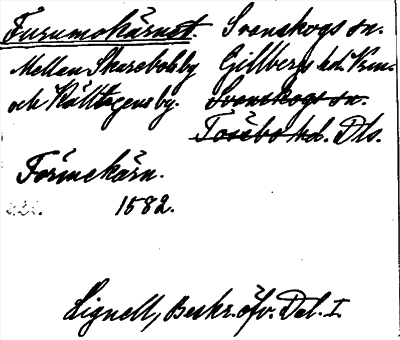 Furumokärnet. Svanskogs sn.
Mellan Skarebolsby Gillbergs hd. Vrm.
och Källtegens by. Svanskogs sn.
Tössbo hd. Dls.
Förinekärn.
1582.
Lignell, Beskr. öfv. Dal. I.